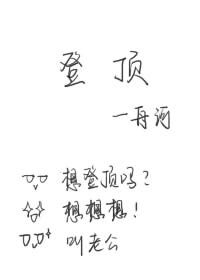 登顶
一再河
想登顶吗?
想想想!
叫老公